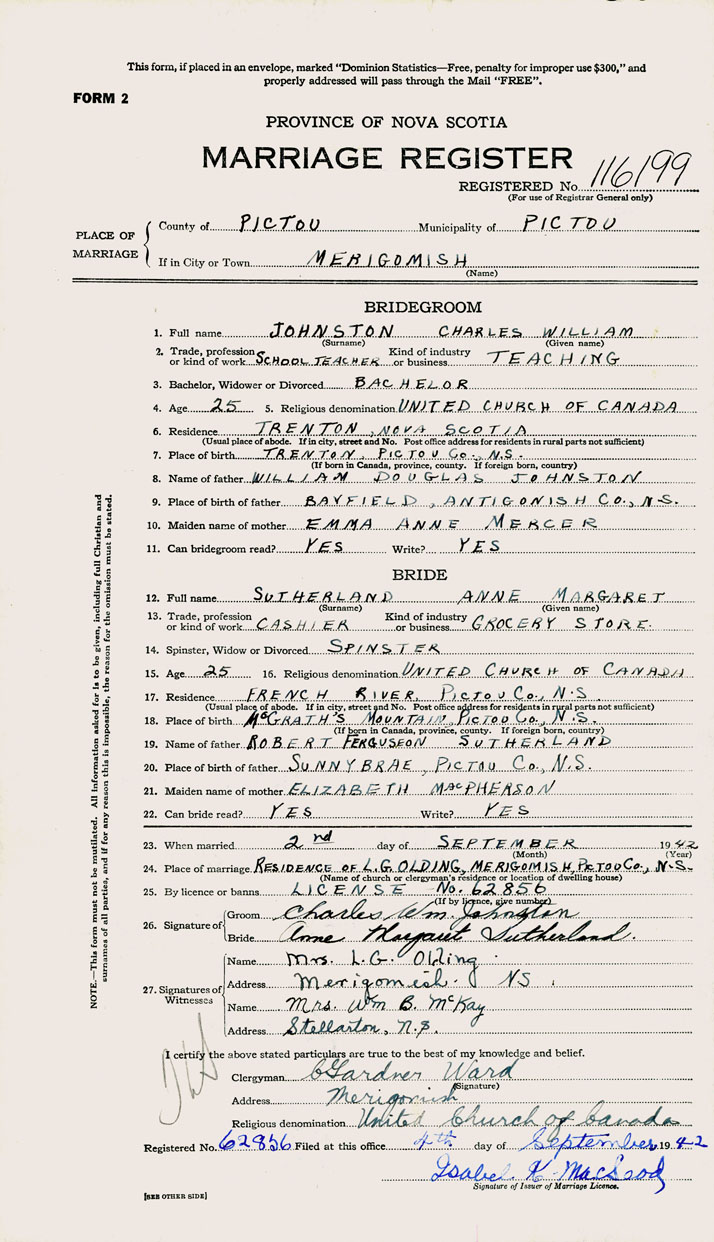 This form, if placed in an envelope, marked "Dominion Statistics—Free, penalty for improper use $300," and
properly addressed will pass through the Mail "FREE".
FORM 2
PROVINCE OF NOVA SCOTIA
MARRIAGE REGISTER
REGISTERED No. 116199
(For use of Registrar General only)
PLACE OF MARRIAGE
County of PICTOU Municipality of PICTOU
If in City or Town MERIGOMISH
(Name)
BRIDEGROOM
1. Full name JOHNSTON CHARLES WILLIAM
(Surname) (Given name)
2. Trade, profession or kind of work SCHOOL TEACHER Kind of industry or business TEACHING
3. Bachelor, Widower or Divorced BACHELOR
4. Age 25 5. Religious denomination UNITED CHURCH OF CANADA
6. Residence TRENTON, NOVA SCOTIA
(Usual place of abode. If in city, street and No. Post office address for residents in rural parts not sufficient)
7. Place of birth TRENTON, PICTOU Co., N.S.
(If born in Canada, province, county. If foreign born, country)
8. Name of father WILLIAM DOUGLAS JOHNSTON
9. Place of birth of father BAYFIELD, ANTIGONISH Co., N.S.
10. Maiden name of mother EMMA ANNE MERCER
11. Can bridegroom read? YES Write? YES
BRIDE
12. Full name SUTHERLAND ANNE MARGARET
(Surname) (Given name)
13. Trade, profession or kind of work CASHIER Kind of industry or business GROCERY STORE.
14. Spinster, Widow or Divorced SPINSTER
15. Age 25 16. Religious denomination UNITED CHURCH OF CANADA
17. Residence FRENCH RIVER, PICTOU Co., N.S.
(Usual place of abode. If in city, street and No. Post office address for residents in rural parts not sufficient)
18. Place of birth McGRATH'S MOUNTAIN, PICTOU Co., N.S.
(If born in Canada, province, county. If foreign born, country)
19. Name of father ROBERT FERGUSEON SUTHERLAND
20. Place of birth of father SUNNYBRAE, PICTOU Co., N.S.
21. Maiden name of mother ELIZABETH MACPHERSON
22. Can bride read? YES Write? YES
23. When married 2nd day of SEPTEMBER 1942
(Month) (Year)
24. Place of marriage RESIDENCE OF L.G. OLDING, MERIGOMISH, PICTOU Co., N.S.
(Name of church or clergyman's residence or location of dwelling house)
25. By licence or banns LICENSE No. 62856
(If by licence, give number)
26. Signature of
Groom Charles Wm. Johnston
Bride Anne Margaret Sutherland.
27. Signatures of Witnesses
Name Mrs. L.G. Olding
Address Merigomish. NS.
Name Mrs. Wm B. McKay
Address Stellarton, N.S.
I certify the above stated particulars are true to the best of my knowledge and belief.
Clergyman C Gardner Ward
(Signature)
Address Merigomish
Religious denomination United Church of Canada
Registered No. 62856 Filed at this office 4th day of September 1942
Isabel K. MacLeod
Signature of Issuer of Marriage Licence.
[SEE OTHER SIDE]
NOTE.—This form must not be mutilated. All information asked for is to be given, including full Christian and
surnames of all parties, and if for any reason this is impossible, the reason for the omission must be stated.